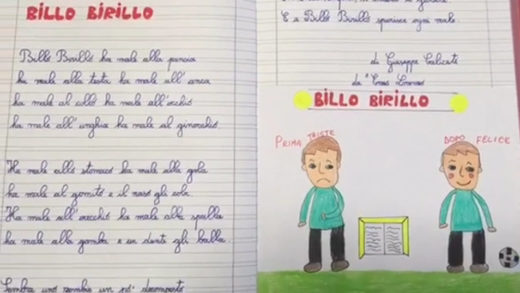 BILLO BIRILLO
Billo Birillo ha male alla pancia
ha male alla testa ha male all'anca
ha male al collo ha male all'occhio
ha male all'unghia ha male al ginocchio.
Ha male allo stomaco ha male alla gola
ha male al gomito e il naso gli cola.
Ha male all'orecchio ha male alla spalla
ha male alla gamba e un dente gli balla.
Sembra uno zombie un po' decomposto
E a Billo Birillo sparisce ogni male.
di Giuseppe
da
BILLO BIRILLO
PRIMA TRISTE
DOPO FELICE